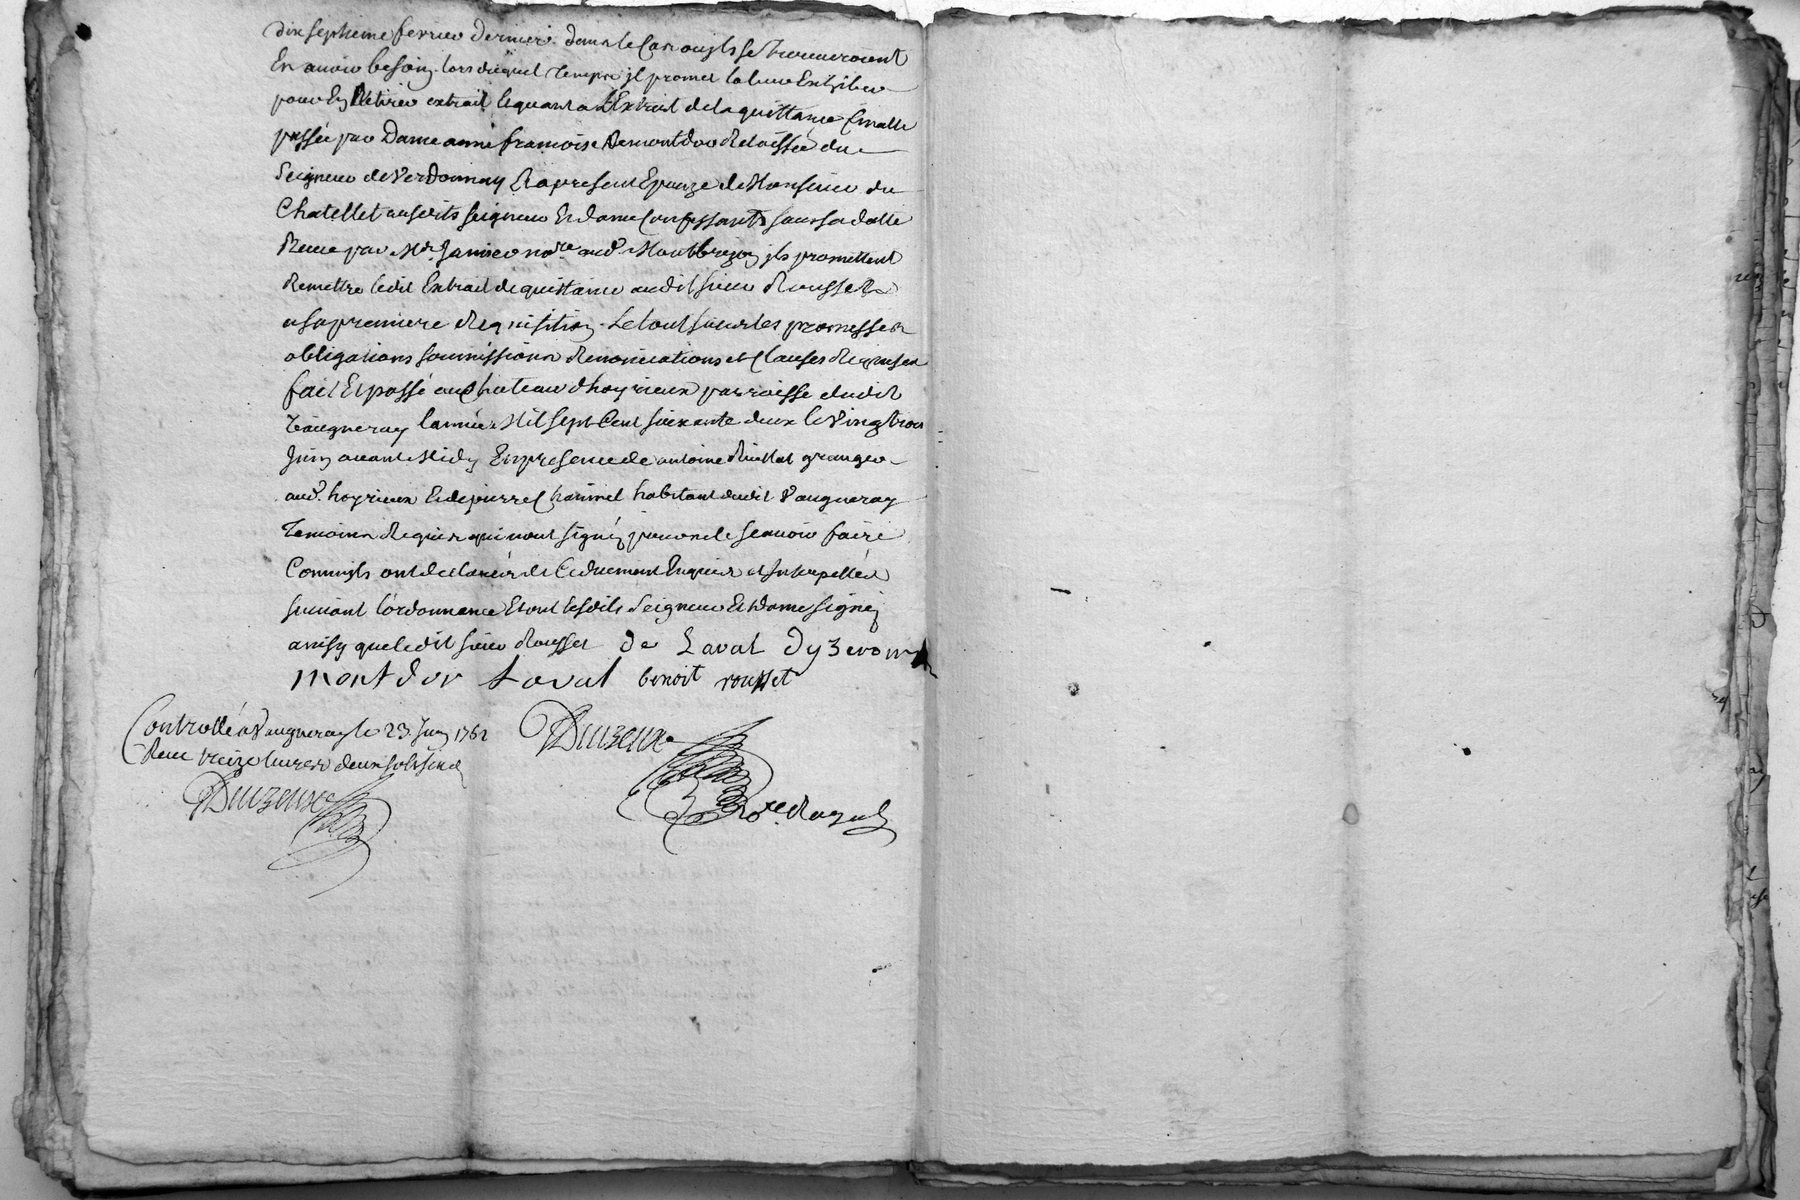 dix septieme fevrier dernier dans le Cas ou ils se trouveroient
En avoir besoin lors duquel temps il promet la leur Exhiber
pour En Retirer extrait Et quant a L'Extrait de la quittance finalle
passée par Dame anne françoise Demontdor Relaissée du
Seigneur de Verdonnay Et a present Epouze de Monsieur du
Chatellet ausdits Seigneur Et dame Confessants sous sa datte
Reçue par Me. Janier nore. aud. Montbrizon ils promettent
Remettre ledit Extrait de quittance audit sieur Rousset
a sa premiere Requisition. Le tout sous les promesses
obligations soumissions Renonciations et Clauses Requises
fait Et passé au Chateau d'hoyrieux parroisse dudit
Vaugneray l'année Mil sept Cent soixante deux le Vingt trois
Juin avant Midy En presence de antoine granger
aud. hoyrieux Et de pierre habitant dudit Vaugneray
Temoins Requis qui n'ont signé pour ne le sçavoir faire
Comme ils ont declaré de Ce duement Enquis et Interpellés
suivant l'ordonnance Et ont lesdits Seigneur Et Dame signé
ainsy que ledit sieur Rousset de Laval Dyzeron
montdor Laval benoit rousset
Controllé a Vaugneray le 23 Juin 1762
Reçu treize livres deux sols six d
Duizeux
Duizeux
nore Royal